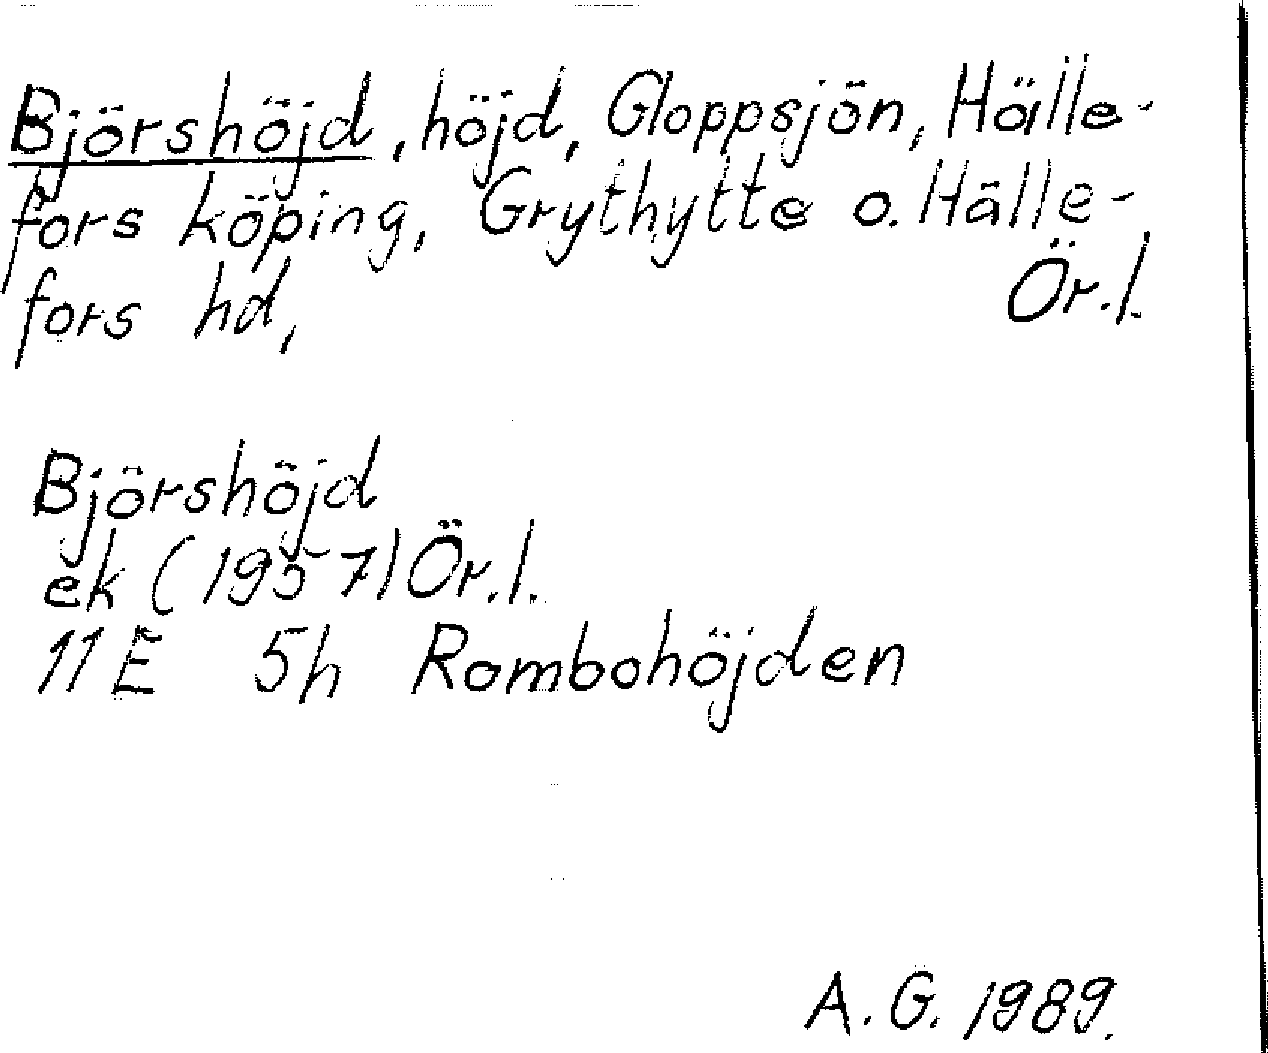 Björshöjd, höjd, Gloppsjön, Hälle-
fors köping, Grythytte o. Hälle-
fors hd, Ör.l.
Björshöjd
ek (1957) Ör.l.
11E 5h Rombohöjden
A.G. 1989.